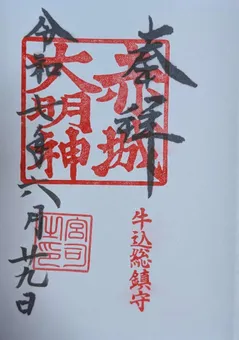 奉拝
赤城
大明神
牛込総鎮守
令和七年六月廿九日
宮司
之印